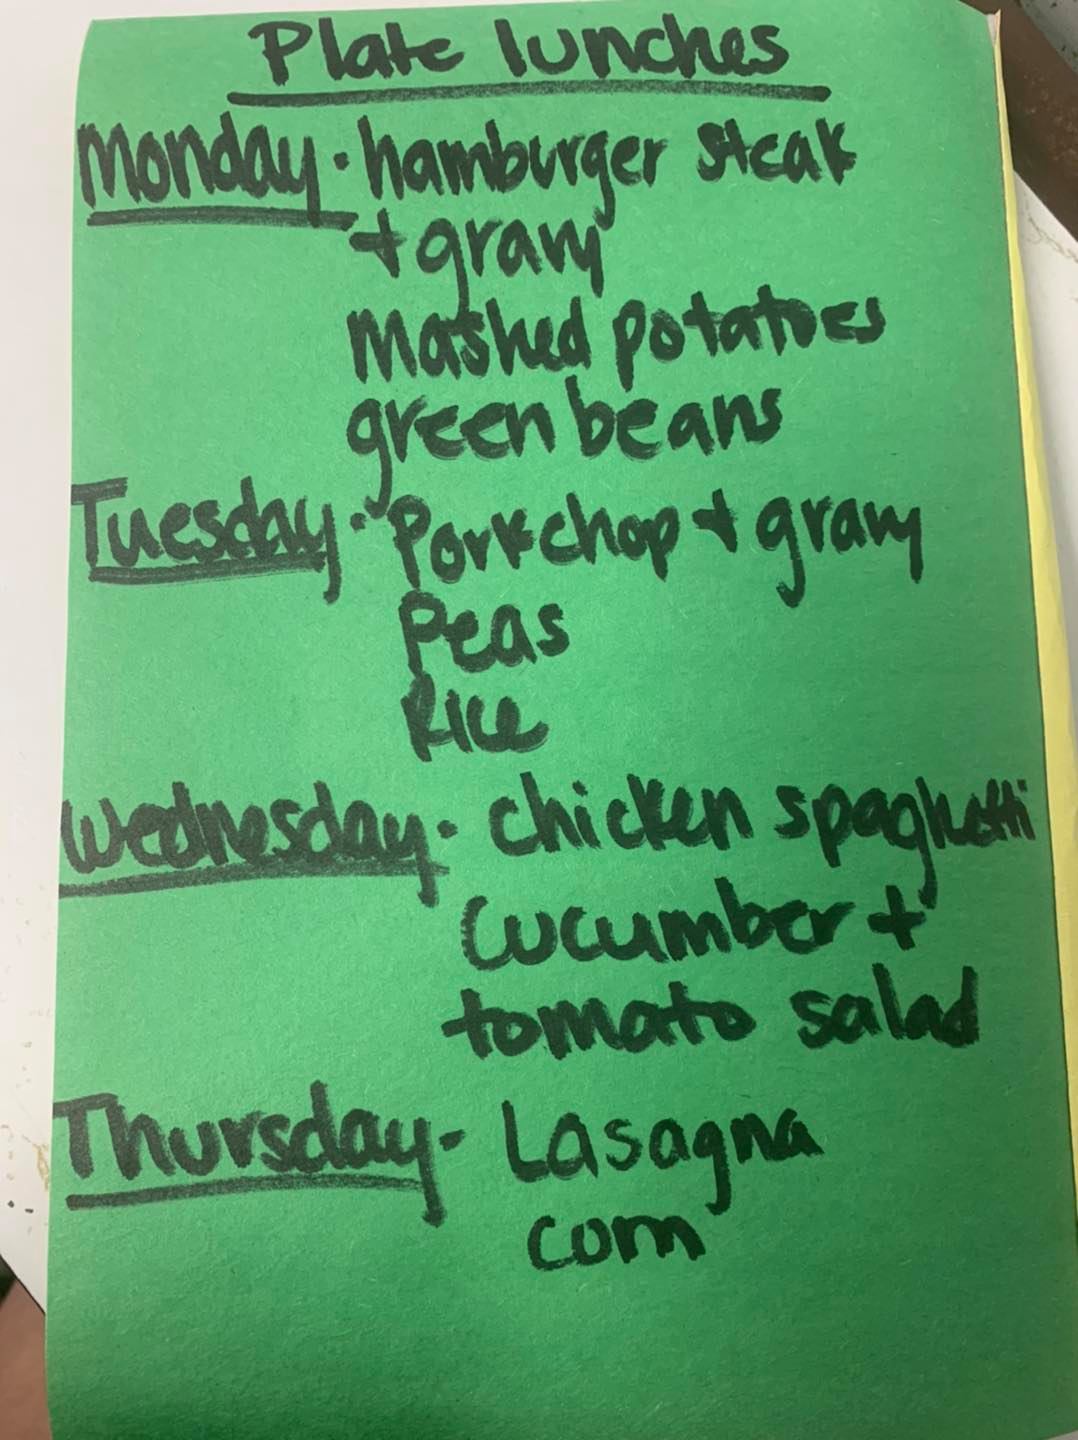 Plate lunches
Monday · hamburger steak
+ gravy
Mashed potatoes
green beans
Tuesday · Porkchop + gravy
Peas
Rice
Wednesday · chicken spaghetti
Cucumber +
tomato salad
Thursday · Lasagna
corn